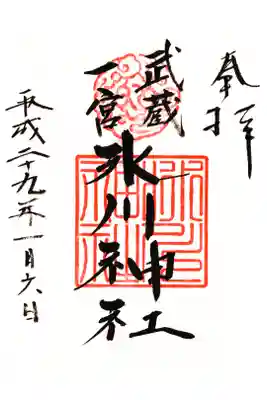 奉拝
武蔵
一宮
氷川神社
平成二十九年一月六日